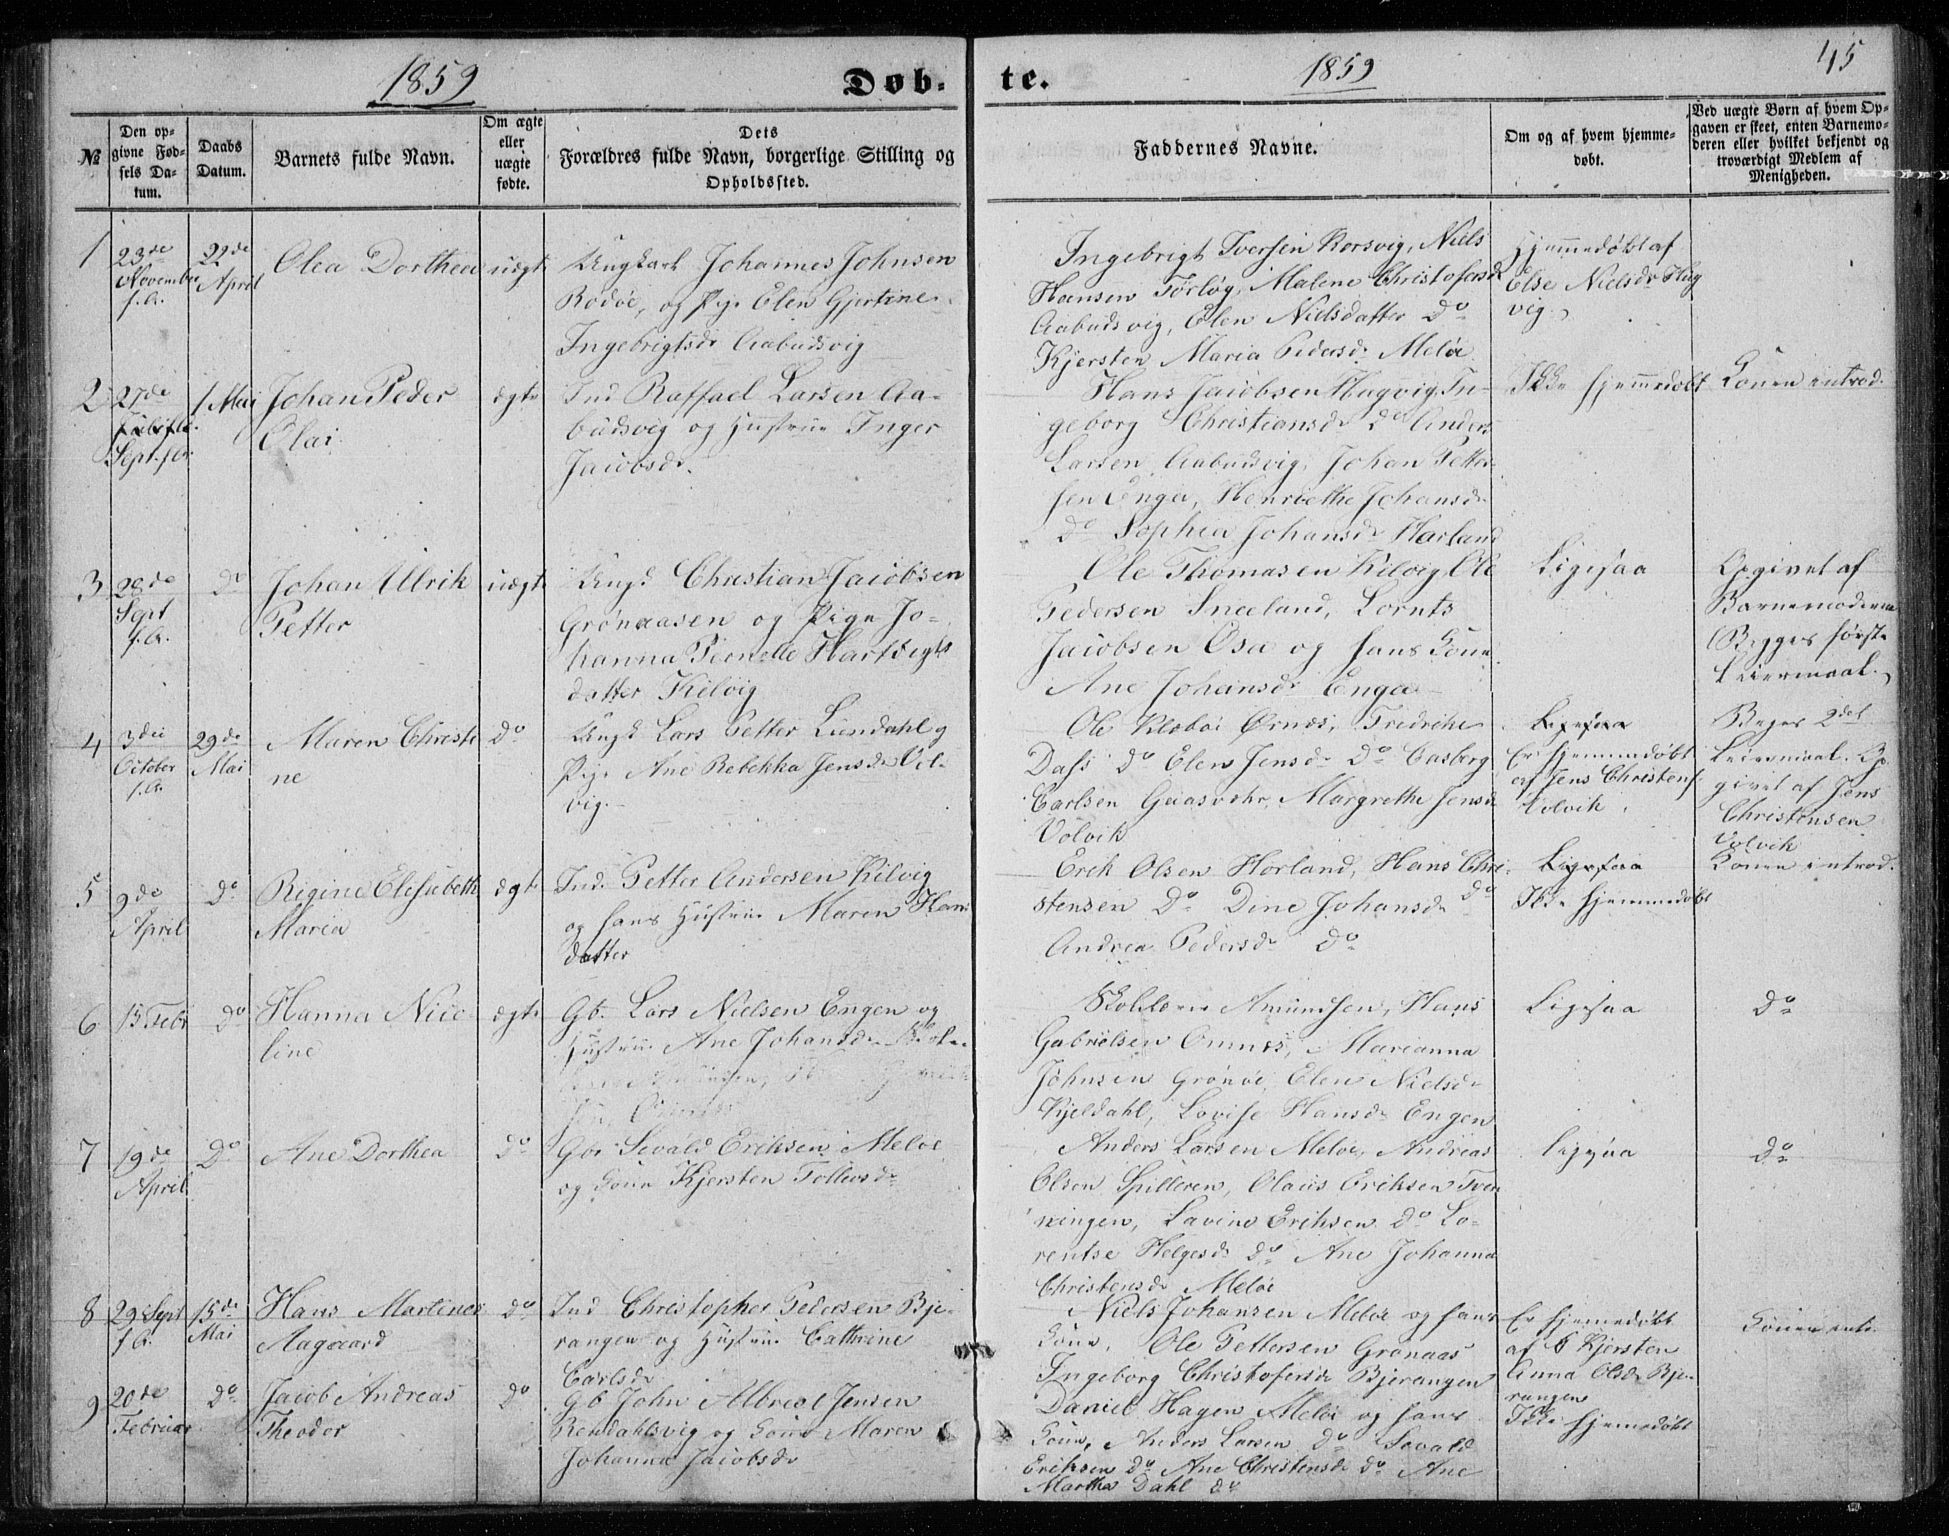 1859
Døb-
te.
1859
45
№
Den op-
givne Fød-
sels Da-
tum.
Daabs
Datum.
Barnets fulde Navn.
Om ægte
eller
uægte
fødte.
Dets
Forældres fulde Navn, borgerlige Stilling og
Opholdssted.
Faddernes Navne.
Om og af hvem hjemme-
døbt.
Ved uægte Børn af hvem Op-
gaven er skeet, enten Barnemo-
deren eller hvilket bekjendt og
troværdigt Medlem af
Menigheden.
1
23de
November
f. A.
22de
April
Olea Dorthea
uægte
Ungkarl Johannes Johnsen
Rødøe, og Pige Elen Gjertine
Ingebrigtsdr Aabudsvig
Ingebrigt Iversen Korsvig, Niels
Hansen Tørløg, Malene Christofersdr
Aabudsvig, Elen Nielsdatter do
Kjersten Maria Pedersdr Meløe
Hjemmedøbt af
Else Nielsdr
vig
2
27de
Sept. f. A.
1 Mai
Johan Peder
Olai
ægte
Ind Raffael Larsen Aa-
budsvig og Hustrue Inger
Jacobsdr.
Hans Jacobsen Hugvig, In-
geborg Christiansdr do Anders
Larsen Aabudsvig, Johan Petter-
sen Enga, Henriethe Johansdr
do Sophia Johansdr Harland
Ikke hjemmedøbt
Konen introd.
3
28de
Sept
f. A.
do
Johan Ullrik
Petter
uægte
Ungk Christian Jacobsen
Grønaasen og Pige Jo-
hanna Pernelle Hartvigs
datter Kilvig
Ole Thomasen Kilvig, Ole
Pedersen Sneeland, Lornts
Jacobsen Osa og hans Kone
Ane Johansdr Enga
Ligesaa
Opgivet af
Barnemoderen
(Begges første
Leiermaal.)
4
3die
October
f. A.
29de
Mai
Maren Christi
ne
do
Ungk Lars Petter Lundahl og
Pige Ane Rebekka Jensdr Vol-
vig.
Ole Klæboe Ørnes, Fredrike
Dass do Elen Jensdr do Casberg
Carlsen Gaasvær, Margrethe Jensdr
Volvik
Ligesaa
Er hjemmedøbt
af Jens Christens.
Volvik.
Beges 2det
Leiermaal. Op-
givet af Jens
Christensen
Volvik
5
9de
April
do
Regine Elisabeth
Maria
ægte
Ind. Petter Andersen Kilvig
og hans Hustrue Maren Hans
datter
Erik Olsen Horland, Hans Chri-
stensen do Dine Johansdr do
Andrea Pedersdr do
Ligesaa
Ikke hjemmedøbt
Konen introd.
6
13 Febr
do
Hanna Nico
line
ægte
Gb. Lars Nielsen Engen og
Hustrue Ane Johansdr
Amundsen, Hans
Gabrielsen Omnes, Marianna
Johnsen Grønøe, Elen Nielsdr
Kjeldahl, Lovise Hansdr Engen
Ligesaa
do
7
19de
April
do
Ane Dorthea
do
Gbr Sevald Eriksen Meløe
og Kone Kjersten Tollevsdr
Anders Larsen Meløe, Andreas
Olsen Spilleren, Olaus Eriksen Tven
ningen, Lavine Eriksen do Lo-
rentse Helgesdr do Ane Johanna
Christensdr Meløe
Ligesaa
do
8
29 Sept
f. A.
15de
Mai
Hans Martines
Aagaard
do
Ind Christopher Pedersen Bje-
rangen og Hustrue Cathrine
Carlsdr
Niels Johansen Meløe og hans
Kone, Ole Pettersen Grønaas
Ingeborg Christofersdr Bjerangen
Er hjemedøbt
af Kjersten
Anna Olsdr Bje-
rangen
Konen intr.
9
20de
Februar
do
Jacob Andreas
Theodor
do
Gb John Albrigt Jensen
Rendahlsvig og Kone Maren
Johanna Jacobsdr
Daniel Hagen Meløe og hans
Kone, Anders Larsen do Sevald
Eriksen do Ane Christensdr do Ane
Martha Dahl do
Ikke hjemedøbt